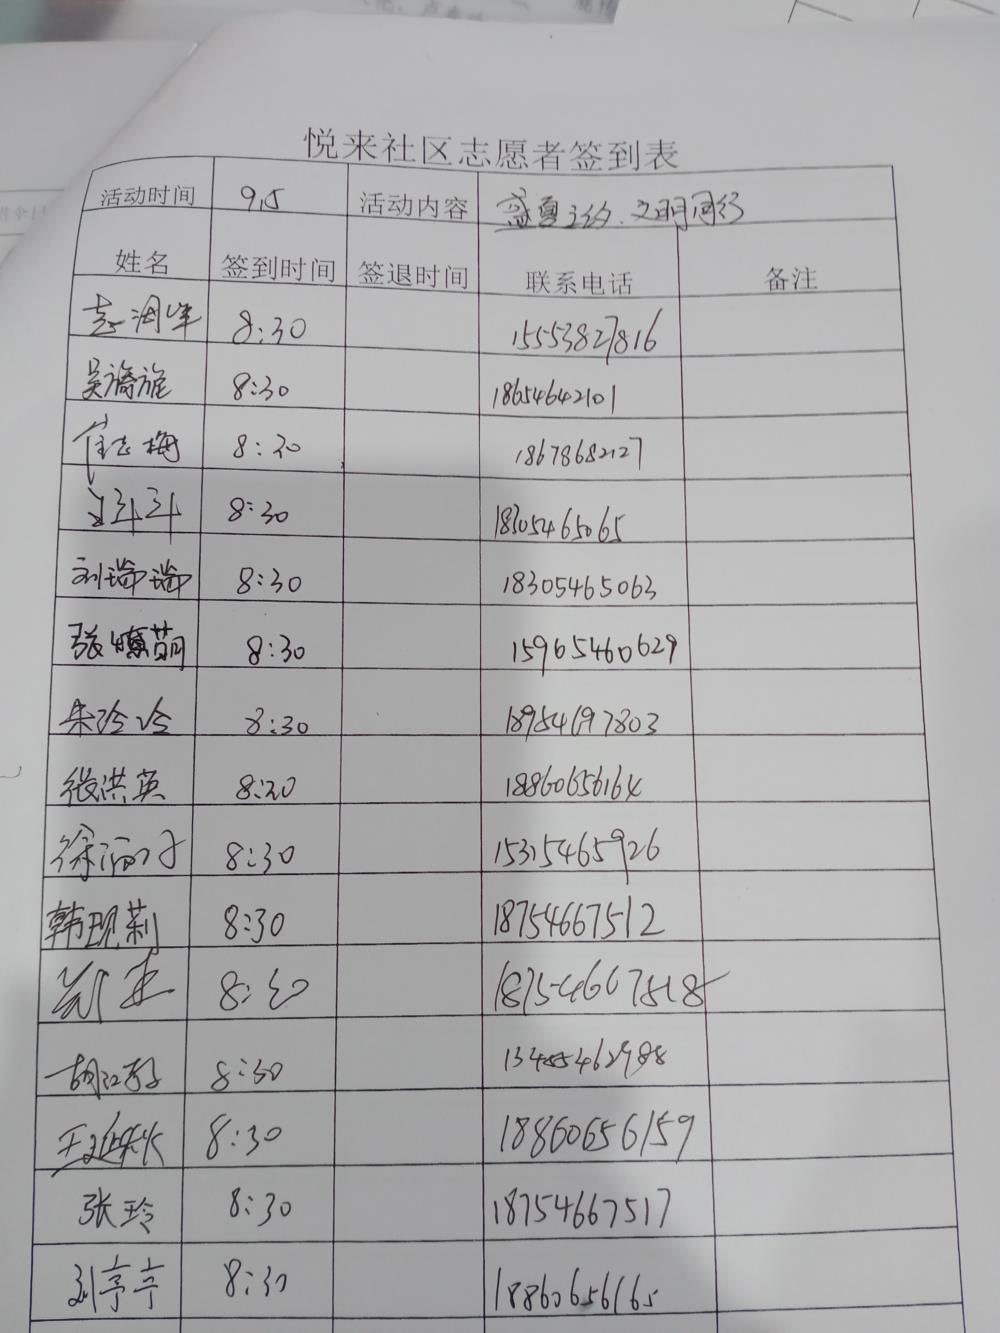 悦来社区志愿者签到表
活动时间 9.5 活动内容 盛夏之约.文明同行
姓名 签到时间 签退时间 联系电话 备注
8:30 15553827816
吴旖旎 8:30 18654642101
8:30 18678682127
8:30 18305465065
刘瑞瑞 8:30 18305465063
张嫌萌 8:30 15965460629
朱玲玲 8:30 18954697803
张洪英 8:30 18860656164
徐丽子 8:30 15315465926
韩现莉 8:30 18754667512
8:30 18754667518
8:30
王延秋 8:30 18860656159
张玲 8:30 18754667517
刘亭亭 8:30 18860656165